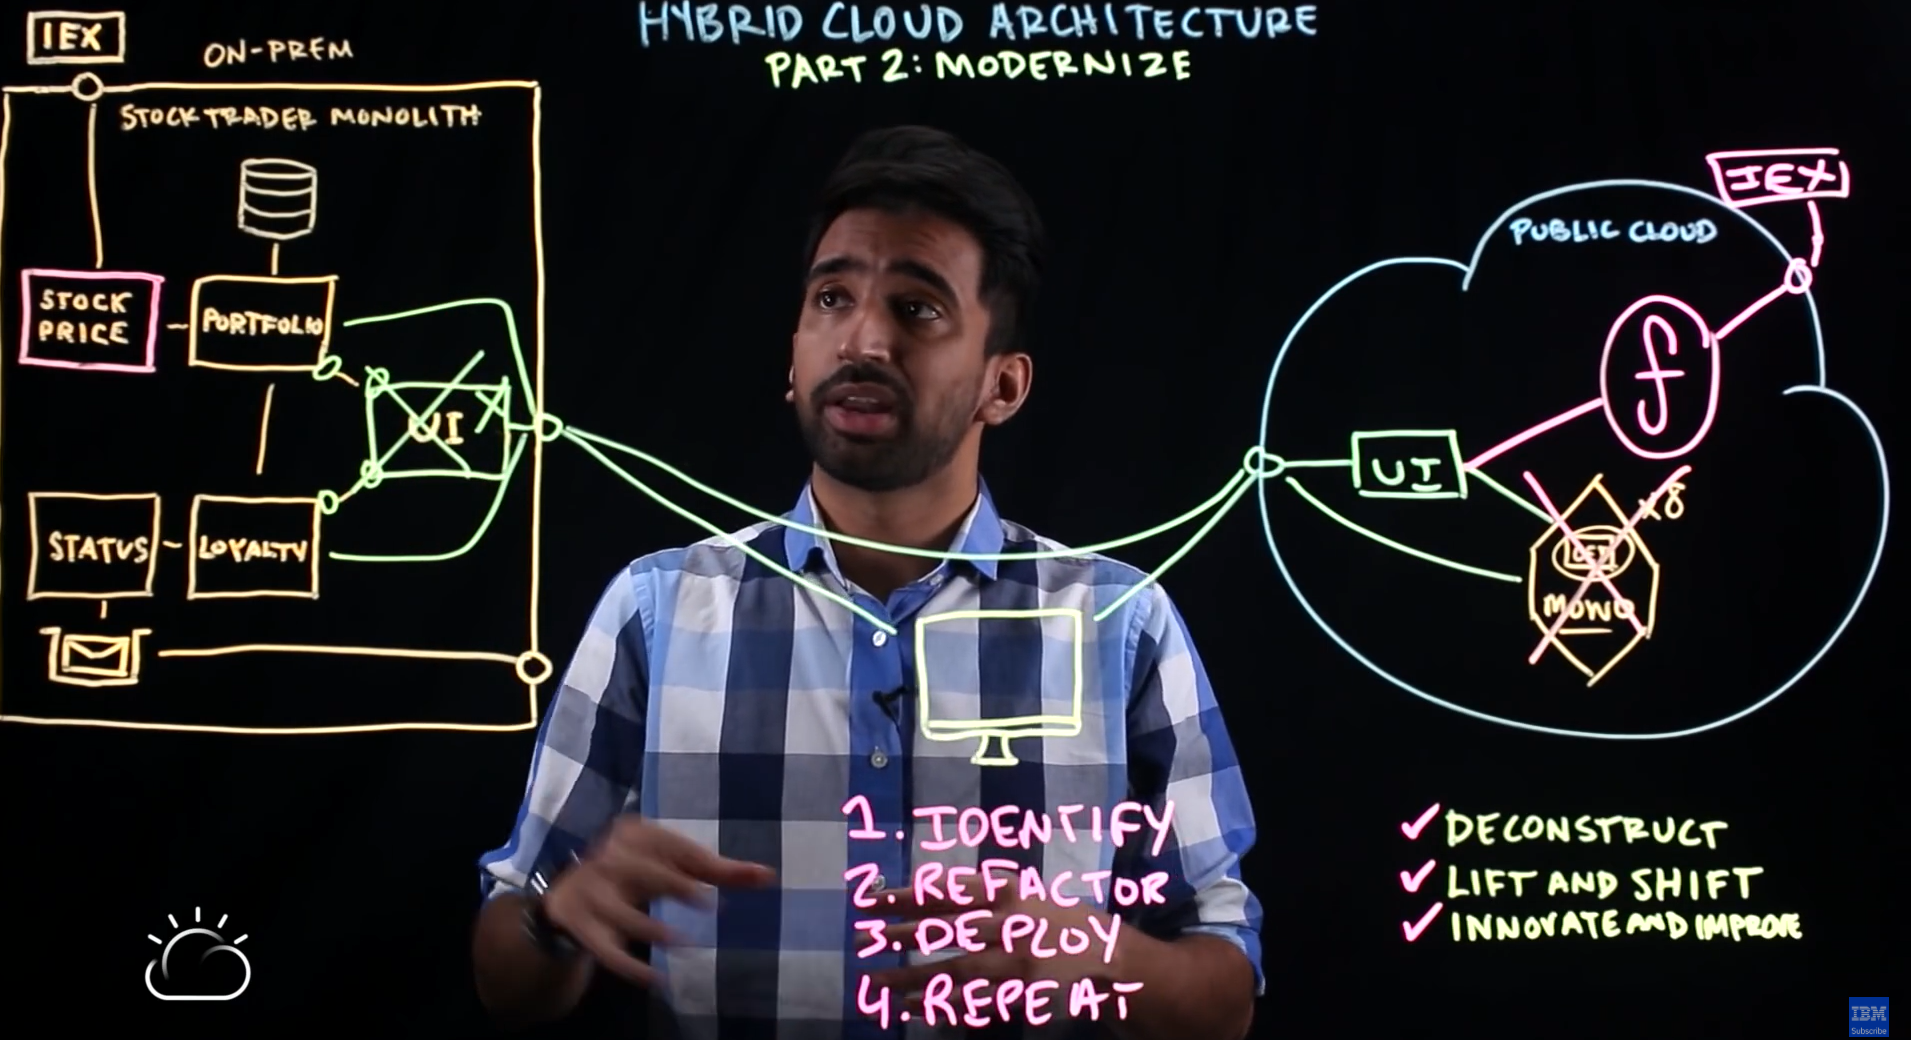 HYBRID CLOUD ARCHITECTURE
PART 2: MODERNIZE
IEX
ON-PREM
STOCK TRADER MONOLITH
STOCK
PRICE
PORTFOLIO
UI
X
STATUS
LOYALTY
PUBLIC CLOUD
IEX
f
UI
x8
MONO
1. IDENTIFY
2. REFACTOR
3. DEPLOY
4. REPEAT
✓ DECONSTRUCT
✓ LIFT AND SHIFT
✓ INNOVATE AND IMPROVE
IBM
Subscribe